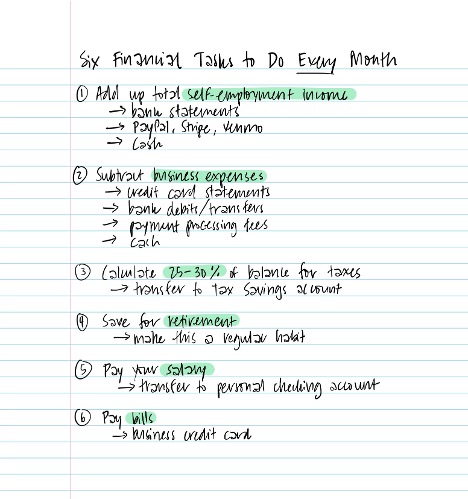 Six Financial Tasks to Do Every Month
① Add up total self-employment income
→ bank statements
→ PayPal, Stripe, Venmo
→ Cash
② Subtract business expenses
→ credit card statements
→ bank debits/transfers
→ payment processing fees
→ cash
③ Calculate 25-30% of balance for taxes
→ transfer to tax savings account
④ Save for retirement
→ make this a regular habit
⑤ Pay your salary
→ transfer to personal checking account
⑥ Pay bills
→ business credit card